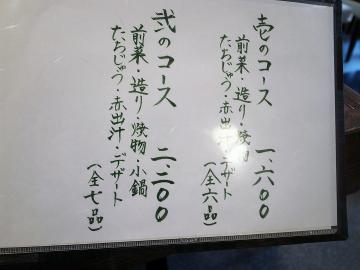 壱のコース 一、六〇〇
前菜・造り・焼物
たちじゅう・赤出汁・デザート
（全六品）
弐のコース 二、二〇〇
前菜・造り・焼物・小鍋
たちじゅう・赤出汁・デザート
（全七品）